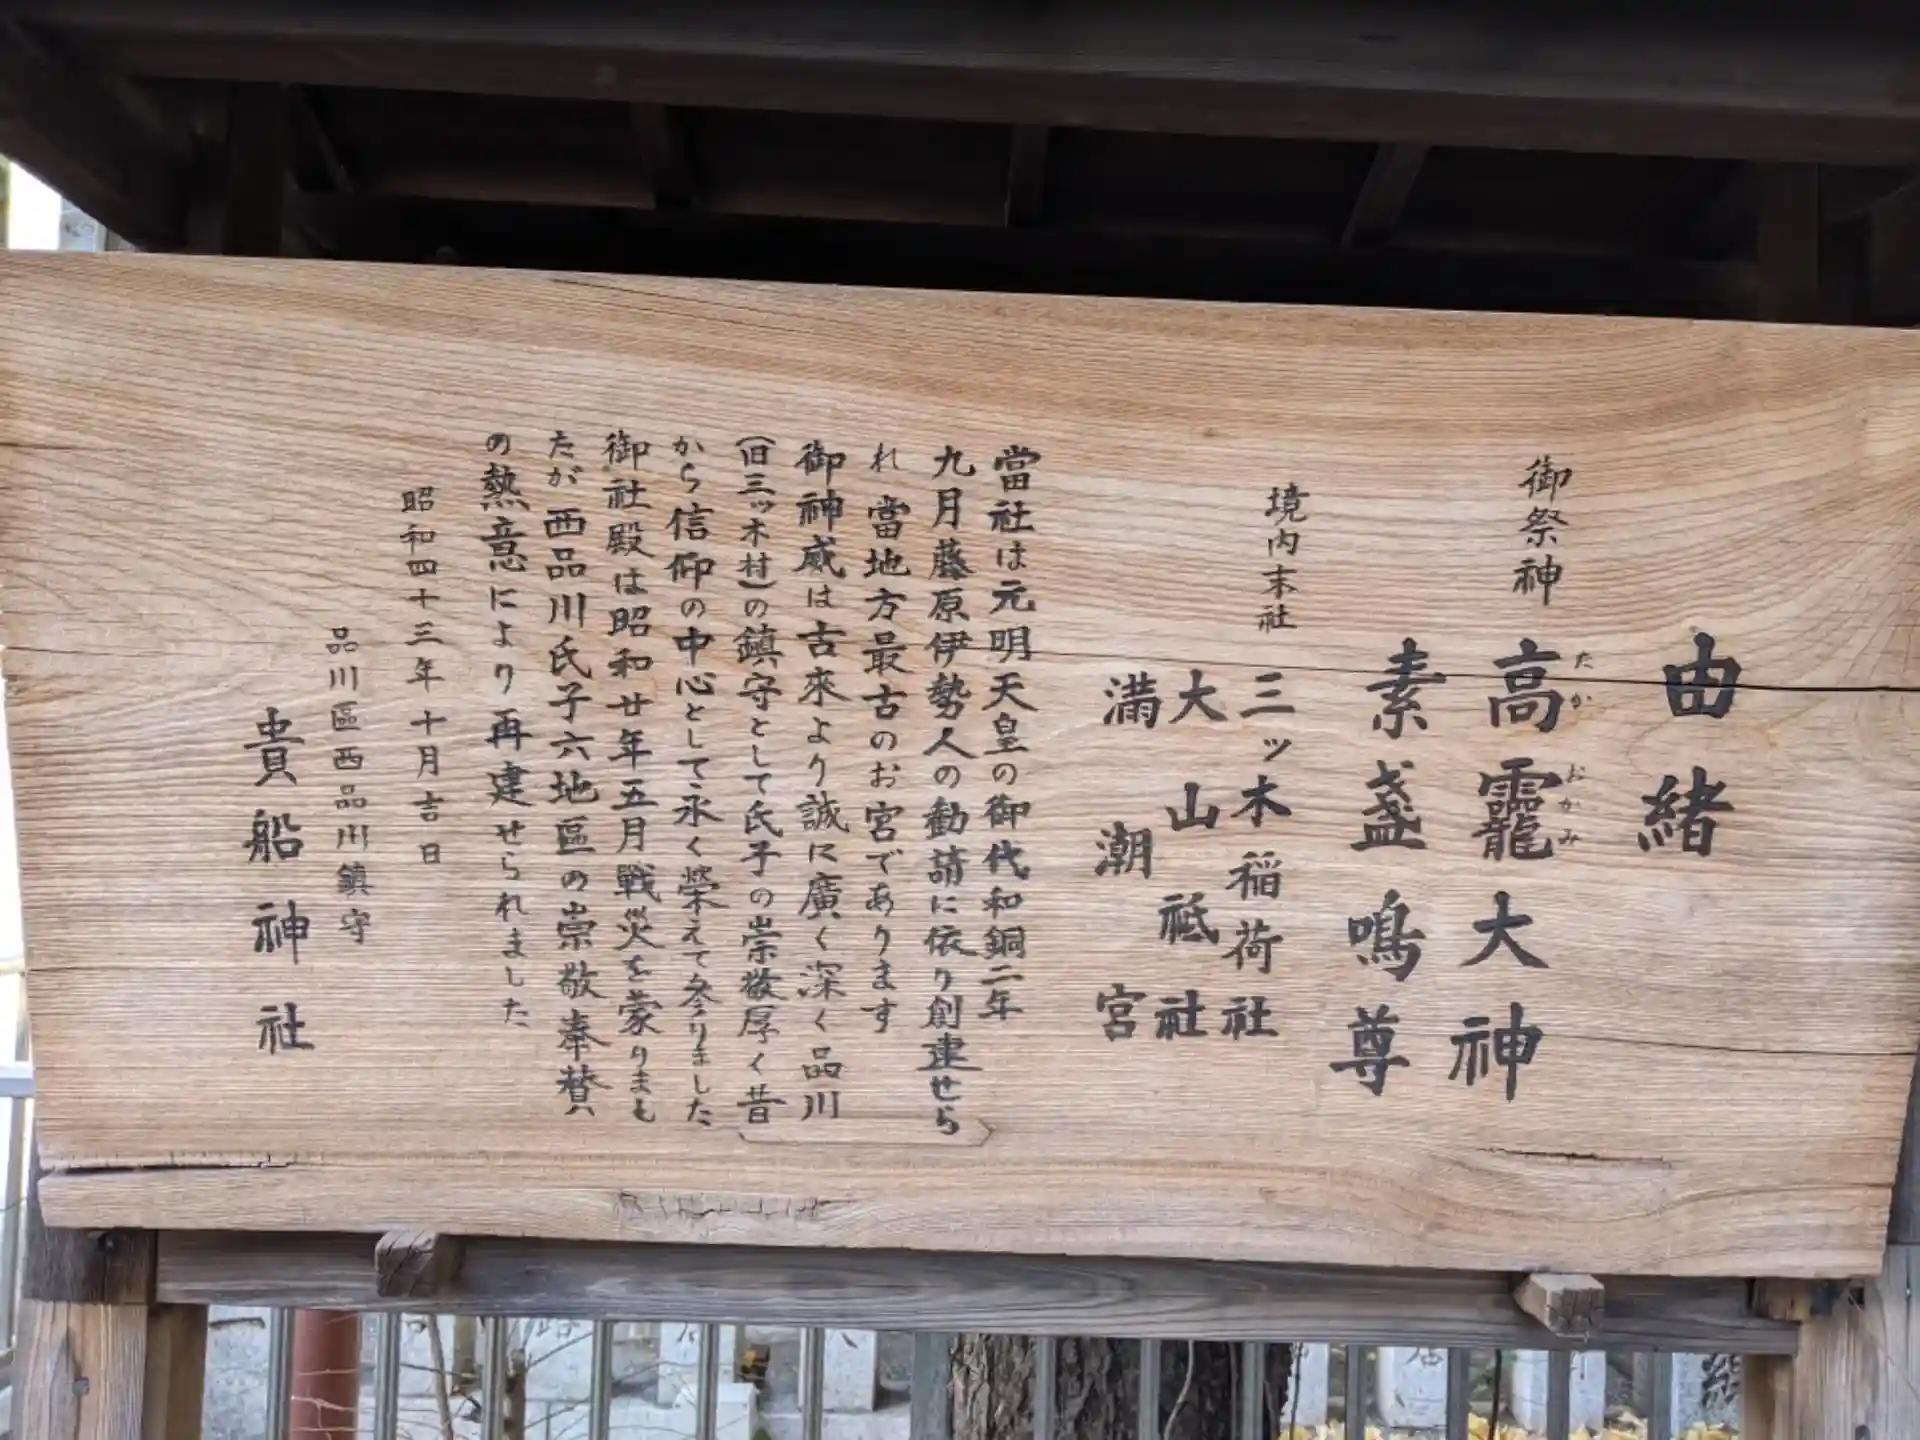 由緒
御祭神 高龗大神
たか おかみ
素盞鳴尊
境内末社 三ッ木稲荷社
大山祗社
満潮宮
當社は元明天皇の御代和銅二年
九月藤原伊勢人の勧請に依り創建せら
れ當地方最古のお宮であります
御神威は古來より誠に廣く深く品川
(旧三ッ木村)の鎮守として氏子の崇敬厚く昔
から信仰の中心として永く榮えて参りました
御社殿は昭和廿年五月戰災を蒙りまし
たが西品川氏子六地區の崇敬奉賛
の熱意により再建せられました
昭和四十三年十月吉日
品川區西品川鎮守
貴船神社